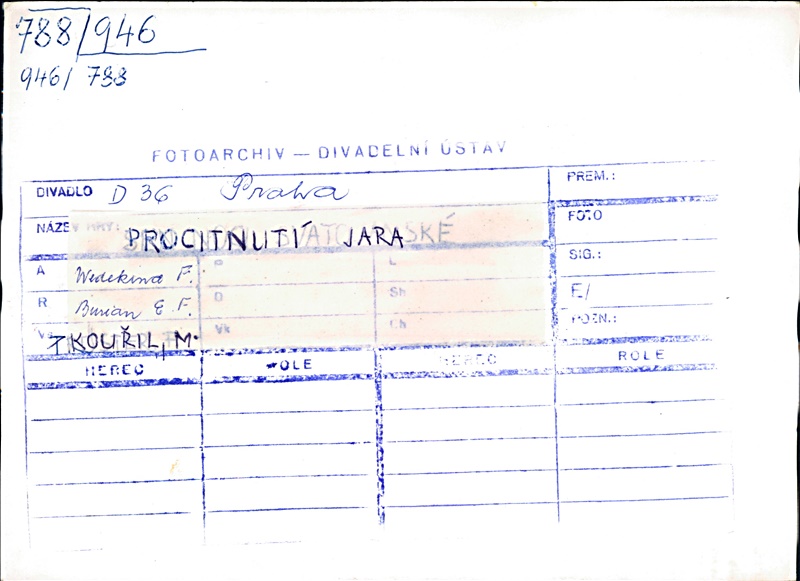 788/946
946/ 788
FOTOARCHIV — DIVADELNÍ ÚSTAV
DIVADLO D 36 Praha
PREM.:
NÁZEV HRY: PROCITNUTÍ JARA
FOTO
A Wedekind F.
L
SIG.:
R Burian E. F.
D
Sb
E/
T KOUŘIL, M.
Vk
Ch
POZN.:
HEREC ROLE HEREC ROLE